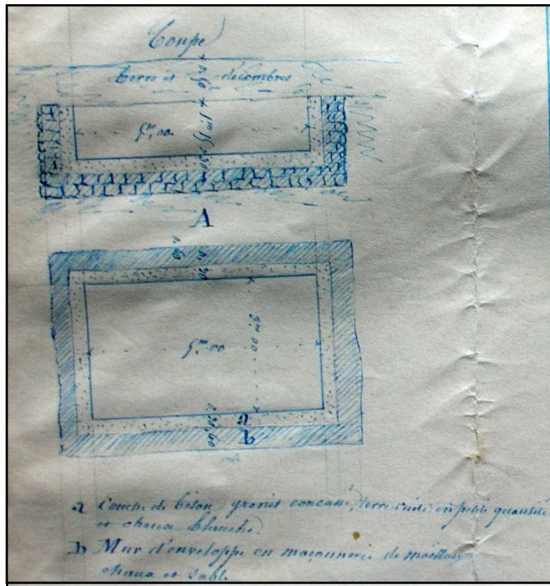 Coupe
terres et décombres
5m,00
A
5m,00
3m,00
a
b
a Couche de béton, granit concassé, terre cuite en petite quantité
et chaux blanche.
b Mur d'enveloppe en maçonnerie de moellons
chaux et sable.